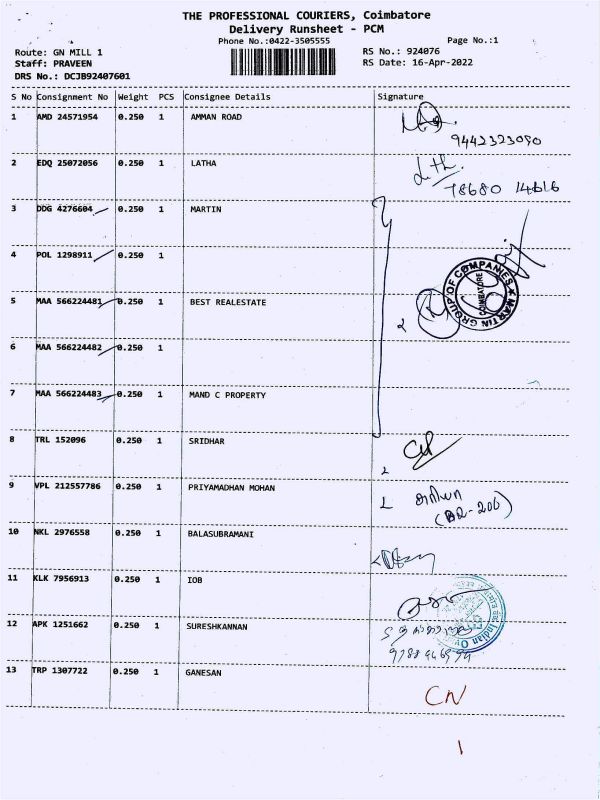 THE PROFESSIONAL COURIERS, Coimbatore
Delivery Runsheet - PCM
Phone No.:0422-3505555
Page No.:1
Route: GN MILL 1
RS No.: 924076
Staff: PRAVEEN
RS Date: 16-Apr-2022
DRS No.: DCJB92407601
S No Consignment No Weight PCS Consignee Details Signature
1 AMD 24571954 0.250 1 AMMAN ROAD
9442323090
2 EDQ 25072056 0.250 1 LATHA
78680 14616
3 DDG 4276604 0.250 1 MARTIN
4 POL 1298911 0.250 1
MARTIN GROUP OF COMPANIES
COIMBATORE
5 MAA 566224481 0.250 1 BEST REALESTATE
6 MAA 566224482 0.250 1
7 MAA 566224483 0.250 1 MAND C PROPERTY
8 TRL 152096 0.250 1 SRIDHAR
9 VPL 212557786 0.250 1 PRIYAMADHAN MOHAN
10 NKL 2976558 0.250 1 BALASUBRAMANI
11 KLK 7956913 0.250 1 IOB
12 APK 1251662 0.250 1 SURESHKANNAN
13 TRP 1307722 0.250 1 GANESAN
CN
1